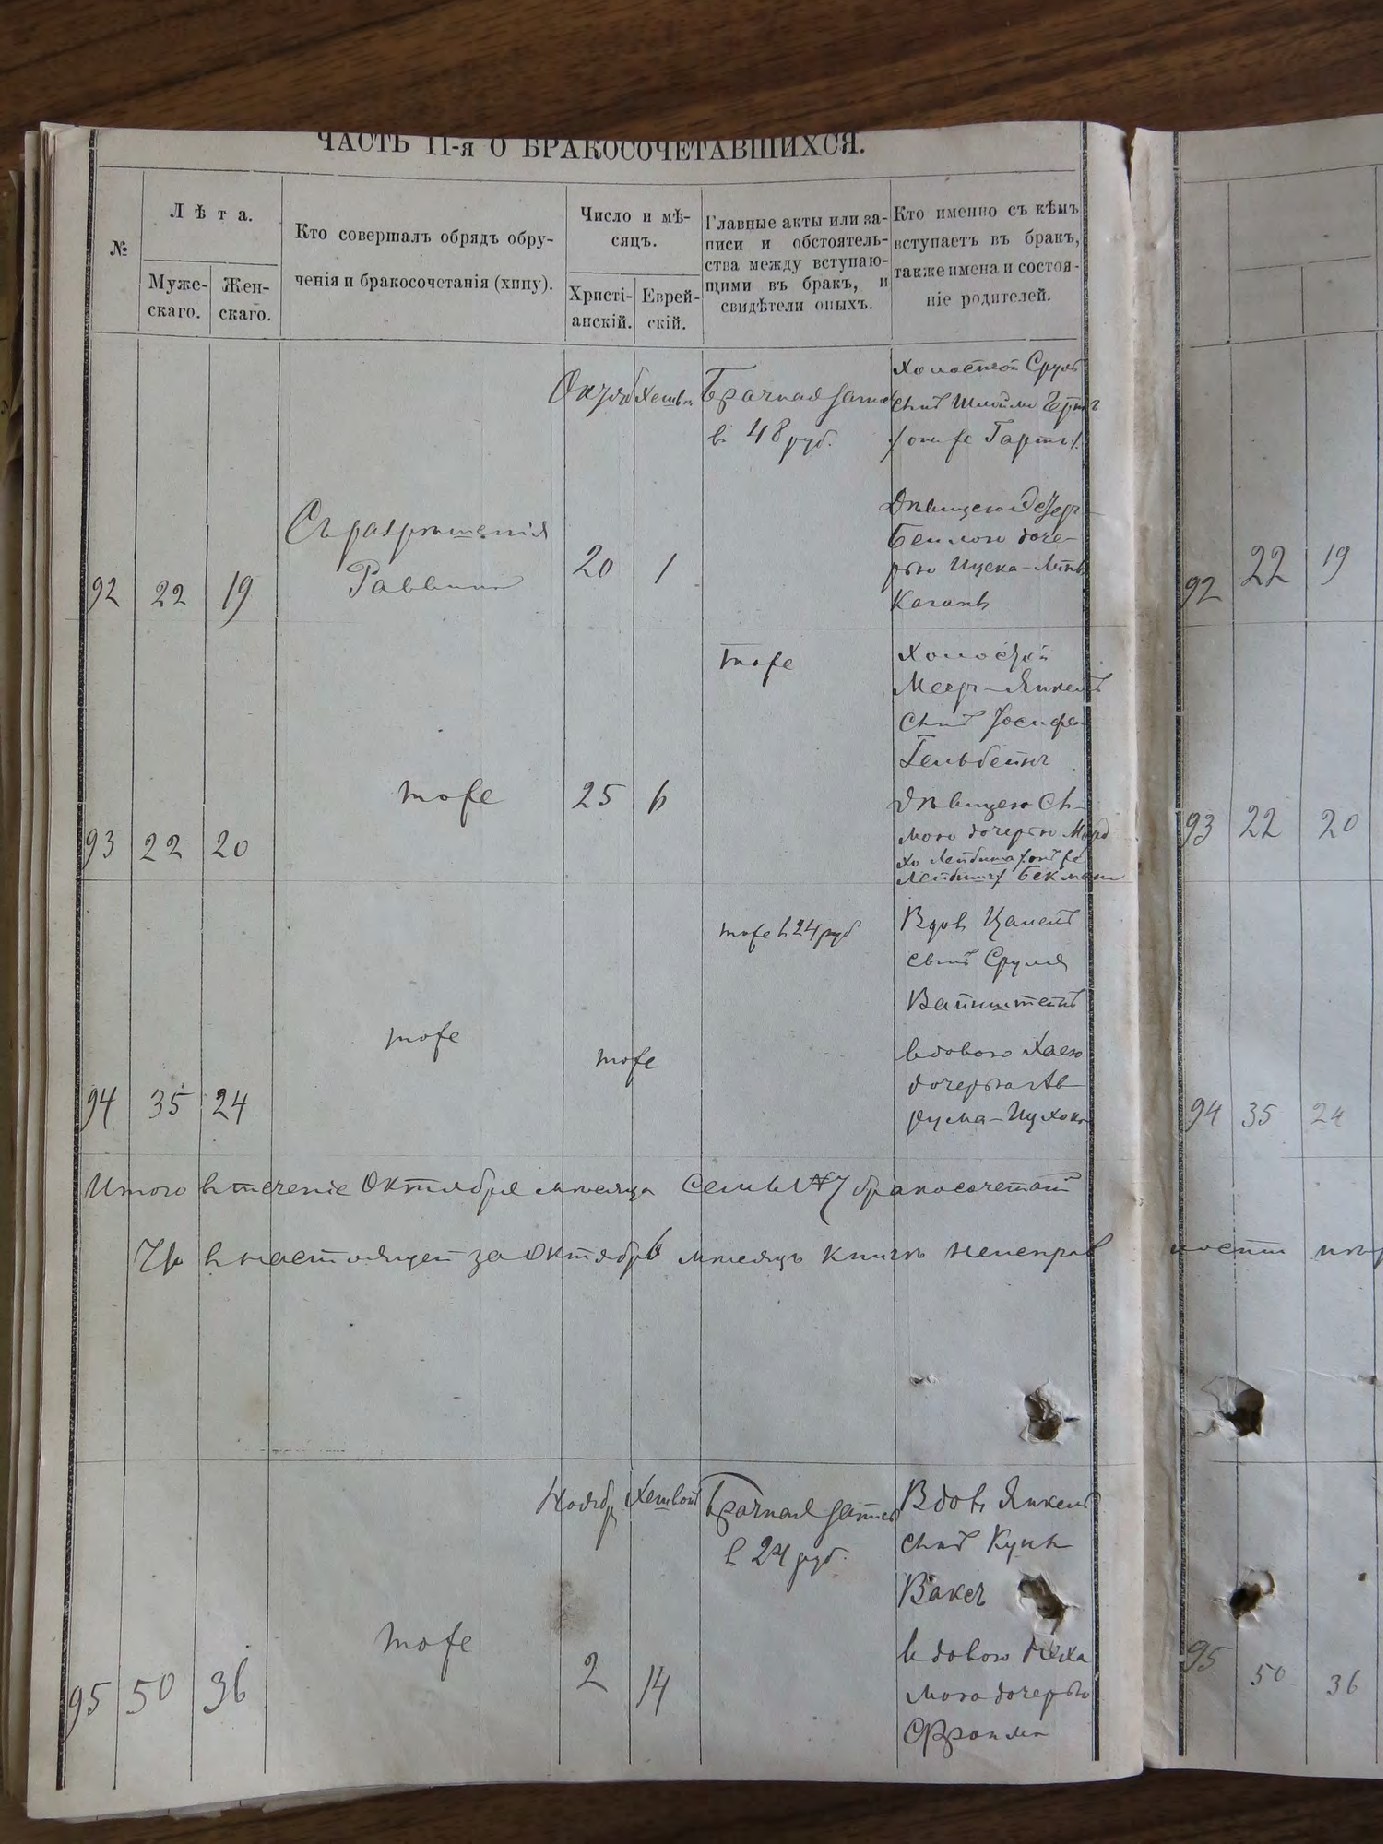 ЧАСТЬ II-я О БРАКОСОЧЕТАВШИХСЯ.
№
Лѣта.
Муже-
скаго.
Жен-
скаго.
Кто совершалъ обрядъ обру-
ченія и бракосочетанія (хипу).
Число и мѣ-
сяцъ.
Христі-
анскій.
Еврей-
скій.
Главные акты или за-
писи и обстоятель-
ства между вступаю-
щими въ бракъ, и
свидѣтели оныхъ.
Кто именно съ кѣмъ
вступаетъ въ бракъ,
также имена и состоя-
ніе родителей.
92 22 19
Съ разрѣшенія
Раввина
Октяб Хешв
20 1
Брачная запис
в 48 руб.
Холостой Сруль
сынъ Шмойли
онъ же
Дѣвицею
Бейлою доче-
рью Ицека-Лейб
Коганъ
93 22 20
тоже
25 6
тоже
Холостой
Меер-Янкель
сынъ Йосифа
Гельбейнъ
дѣвицею Сы-
мою дочерью Мордхо
Лейбиша онъ же
Лейбишъ Бекман
94 35 24
тоже
тоже
тоже в 24 руб
Вдов
сынъ Сруля
Вайнштейнъ
вдовою Хаею
дочерью Ав-
рума-Ицхока
Итого в теченіе Октября мѣсяца семь № 7 бракосочетаній
Что в настоящей за Октябрь мѣсяцъ книгѣ неисправ
ностей
95 50 36
тоже
Ноябр Хешвон
2 14
Брачная запись
в 24 руб.
Вдов Янкель
сынъ
Ваксъ
вдовою
дочерью
Фроима
92 22 19
93 22 20
94 35 24
95 50 36